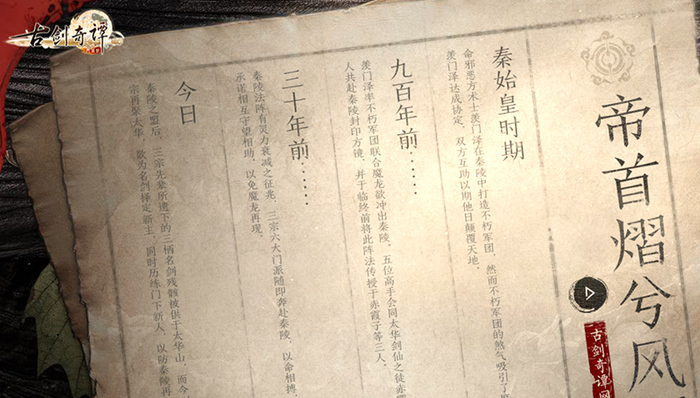 古剑奇谭
帝首熠兮风
古剑奇谭网
秦始皇时期
命邪恶方术士羡门泽在秦陵中打造不朽军团,然而不朽军团的煞气吸引了
羡门泽达成协定,双方互助以期他日颠覆天地。
九百年前……
羡门泽率不朽军团联合魔龙欲冲出秦陵,五位高手会同太华剑仙之徒赤霞
人共赴秦陵封印方镜,并于临终前将此阵法传授于赤霞子等三人。
三十年前……
秦陵法阵有灵力衰减之征兆,三宗六大门派随即奔赴秦陵,以命相搏,
承诺相互守望相助,以免魔龙再现。
今日
秦陵之盟后,三宗先辈所遗下的三柄名剑残骸被供于太华山,而今
宗再聚太华,欲为名剑择定新主,同时历练门下新人,以防秦陵再